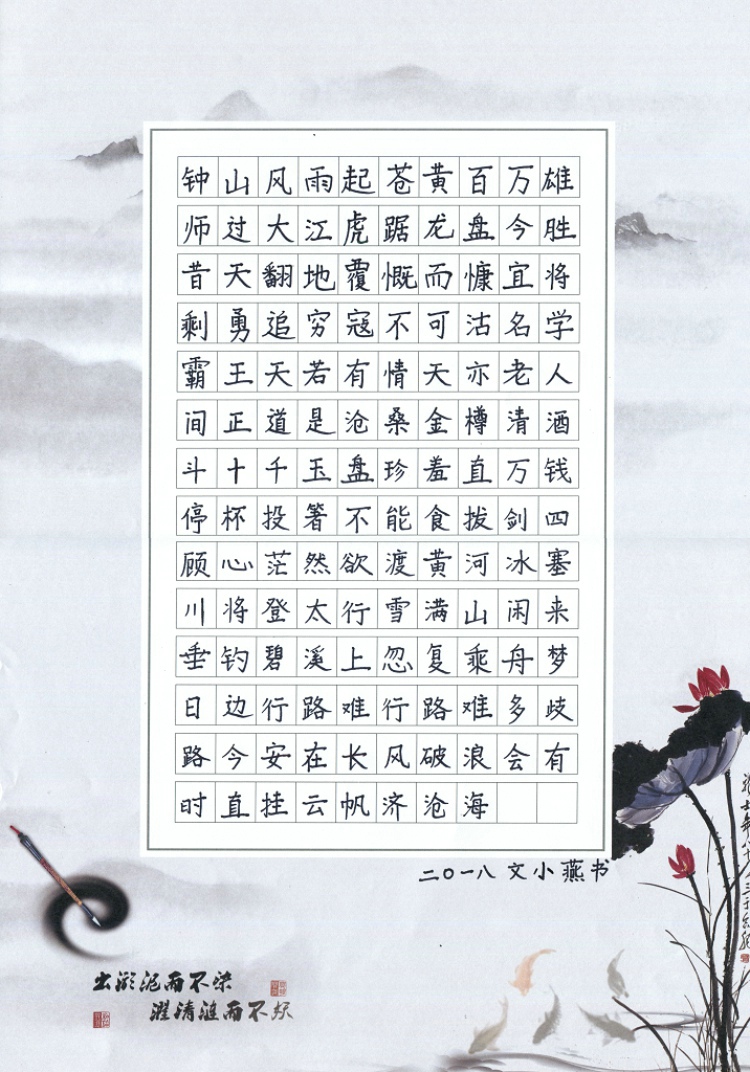 钟山风雨起苍黄百万雄
师过大江虎踞龙盘今胜
昔天翻地覆慨而慷宜将
剩勇追穷寇不可沽名学
霸王天若有情天亦老人
间正道是沧桑金樽清酒
斗十千玉盘珍羞直万钱
停杯投箸不能食拔剑四
顾心茫然欲渡黄河冰塞
川将登太行雪满山闲来
垂钓碧溪上忽复乘舟梦
日边行路难行路难多歧
路今安在长风破浪会有
时直挂云帆济沧海
二〇一八 文小燕书
出淤泥而不染
濯清涟而不妖